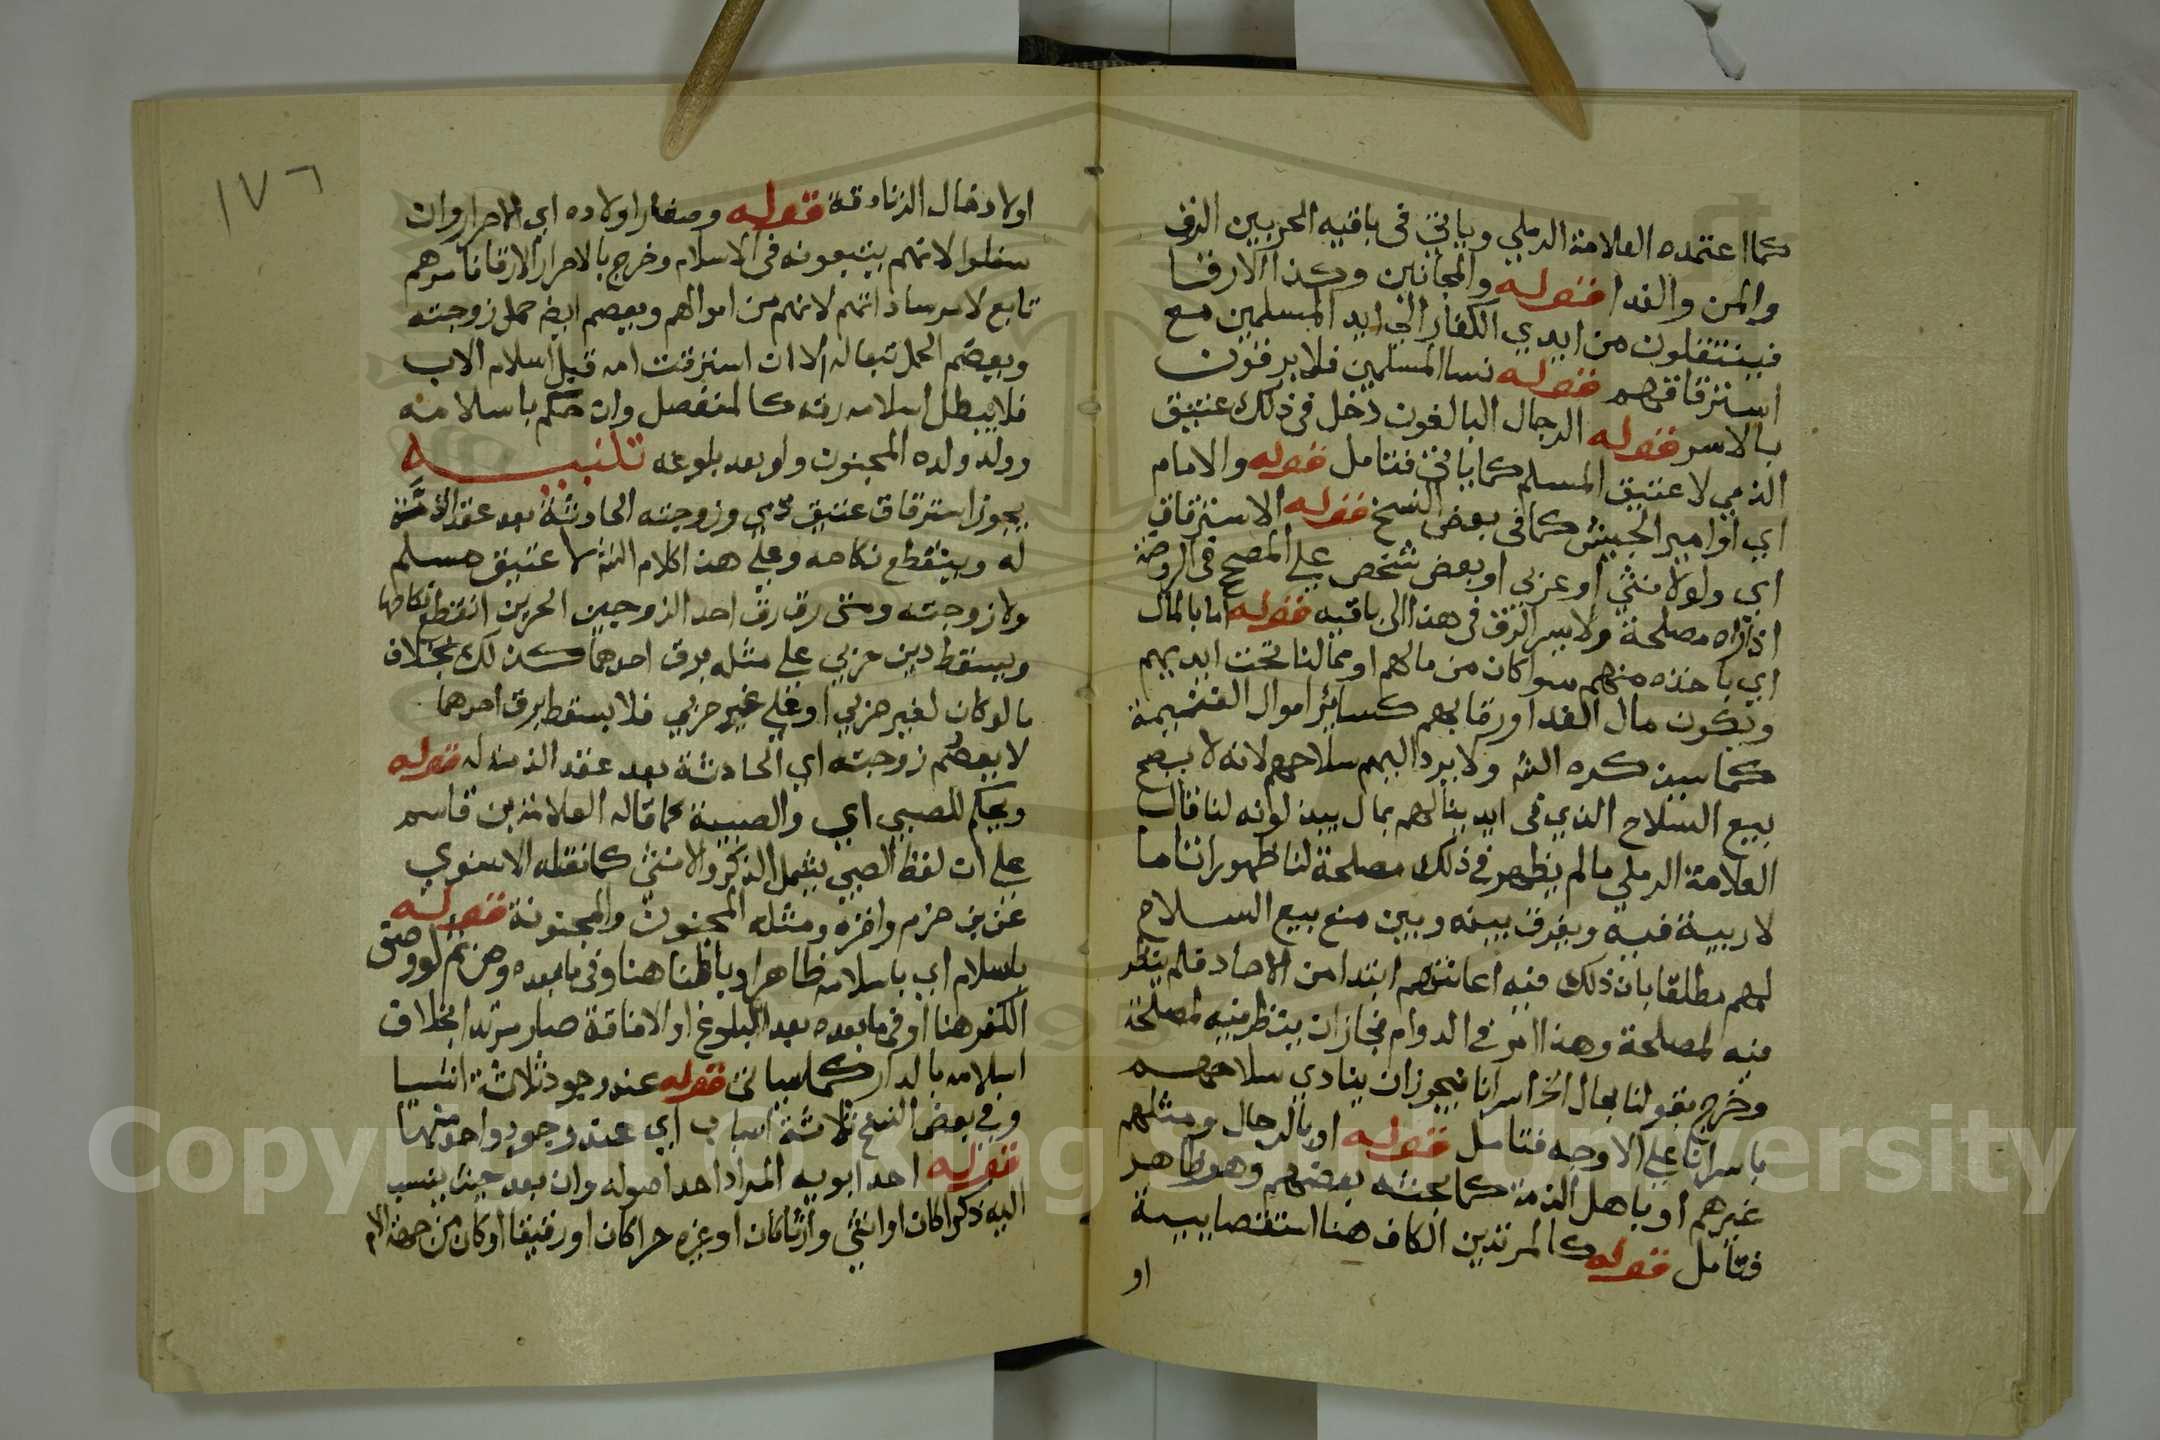 كما اعتمده العلامة الرملي وياتي في باقيه الحربيين الرق
والمن والفدا قوله والمجانين وكذا الارقا
فينتقلون من ايدي الكفار الي ايد المسلمين مع
استرقاقهم قوله نسا المسلمين فلا يرقون
بالاسر قوله الرجال البالغون دخل في ذلك عتيق
الذمي لا عتيق المسلم كما ياتي فتامل قوله والامام
اي او امير الجيش كما في بعض النسخ قوله الاسترقاق
اي ولو لانثي او عربي او بعض شخص علي المصحح في الروضة
اذا راه مصلحة ولا يسر الرق في هذا الي باقيه قوله اما بالمال
اي ياخذه منهم سوا كان من مالهم او مما لنا تحت ايديهم
ويكون مال الفدا ورقابهم كسائر اموال الغنيمة
كما سيذكره الش ولا يرد اليهم سلاحهم لانه لا يصح
بيع السلاح الذي في ايدينا لهم بمال يبذلونه لنا قال
العلامة الرملي ما لم يظهر في ذلك مصلحة لنا ظهورا تاما
لا ريبة فيه ويفرق بينه وبين منع بيع السلاح
لهم مطلقا بان ذلك فيه اعانتهم ابتدا من الاحاد فلم ينظر
فيه لمصلحة وهذا امر في الدوام فجاز ان ينظر فيه لمصلحة
وخرج بقولنا بمال اخر اسرانا فيجوز ان ينادي سلاحهم
باسرانا علي الاوجه فتامل قوله او بالرجال ومثلهم
غيرهم او باهل الذمة كما بحثه بعضهم وهو ظاهر
فتامل قوله كالمرتدين الكاف هنا استقصايية
او
١٧٦
اولادخال الزنادقة قوله وصغار اولاده اي الاحرار وان
سفلوا لانهم يتبعونه في الاسلام وخرج بالاحرار الارقا فامرهم
تابع لامر ساداتهم لانهم من اموالهم ويعصم ايض حمل زوجته
ويعصم الحمل تبعا له الا ان استرقت امه قبل اسلام الاب
فلا يبطل اسلامه رقه كالمنفصل وان حكم باسلامه
وولد ولده المجنون ولو بعد بلوغه تنبيه
يجوز استرقاق عتيق ذمي وزوجته الحادثة بعد عقد الذمة
له وينقطع نكاحه وعلي هذا كلام الش لا عتيق مسلم
ولا زوجته ومتي رق رق احد الزوجين الحرين انقطع نكاحها
ويسقط دين حربي علي مثله برق احدهما كذلك بخلاف
ما لو كان لغير حربي او علي غير حربي فلا يسقط برق احدهما
لا يعصم زوجته اي الحادثة بعد عقد الذمة له قوله
ويحكم للصبي اي والصبية كما قاله العلامة بن قاسم
علي ان لفظ الصبي يشمل الذكر والانثي كما نقله الاسنوي
عن بن حزم واقره ومثله المجنون والمجنونة قوله
باسلام اي باسلامه ظاهرا وباطنا هنا وفي ما بعده ومن ثم لو وصف
الكفر هنا او في ما بعده بعد البلوغ او الافاقة صار مرتدا بخلاف
اسلامه بالدار كما سياتي قوله عند وجود ثلاثة اشيا
وفي بعض النسخ ثلاثة اسباب اي عند وجود واحد منها
قوله احد ابويه المراد احد اصوله وان بعد حيث ينسب
اليه ذكرا كان او انثي وارثا كان او غيره حرا كان او رقيقا او كان من جهة الام